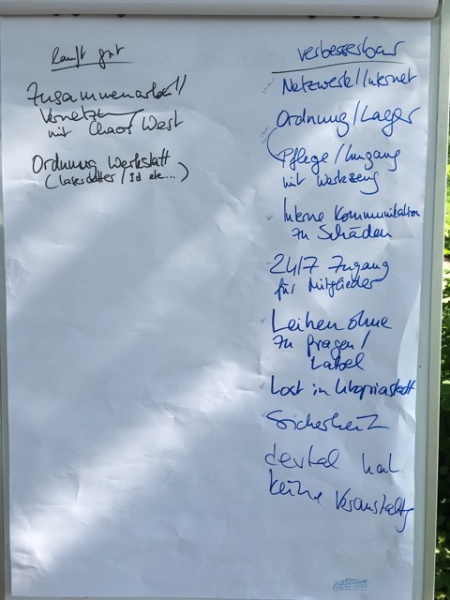 läuft gut
Zusammenarbeit/
Vernetz
mit Chaos West
Ordnung Werkstatt
(Lasercutter/3d etc...)
verbesserbar
Netzwerk/Internet
Ordnung/Lager
Pflege/Umgang
mit Werkzeug
Interne Kommunikation
zu Schäden
24/7 Zugang
für Mitglieder
Leihen ohne
zu fragen/
Label
Lost in Utopiastadt
Sicherheit
devtal hat
keine Veranstaltg